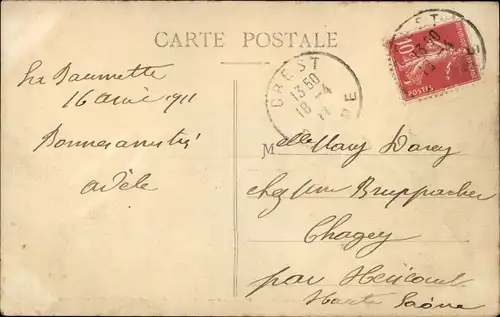 CARTE POSTALE
CREST
13 50
18 - 4
POSTES
10
La Baumette
16 avril 1911
Bonnes amitiés
Adèle
Melle Mary Darcy
chez Mme Bruppacher
Chagey
par Héricourt
Haute Saône